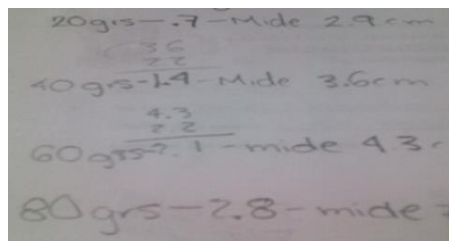 20grs - .7 - Mide 2.9 cm
36
22
40grs - 1.4 - Mide 3.6cm
4.3
2 2
60grs - 2.1 - mide 4.3
80grs - 2.8 - mide =